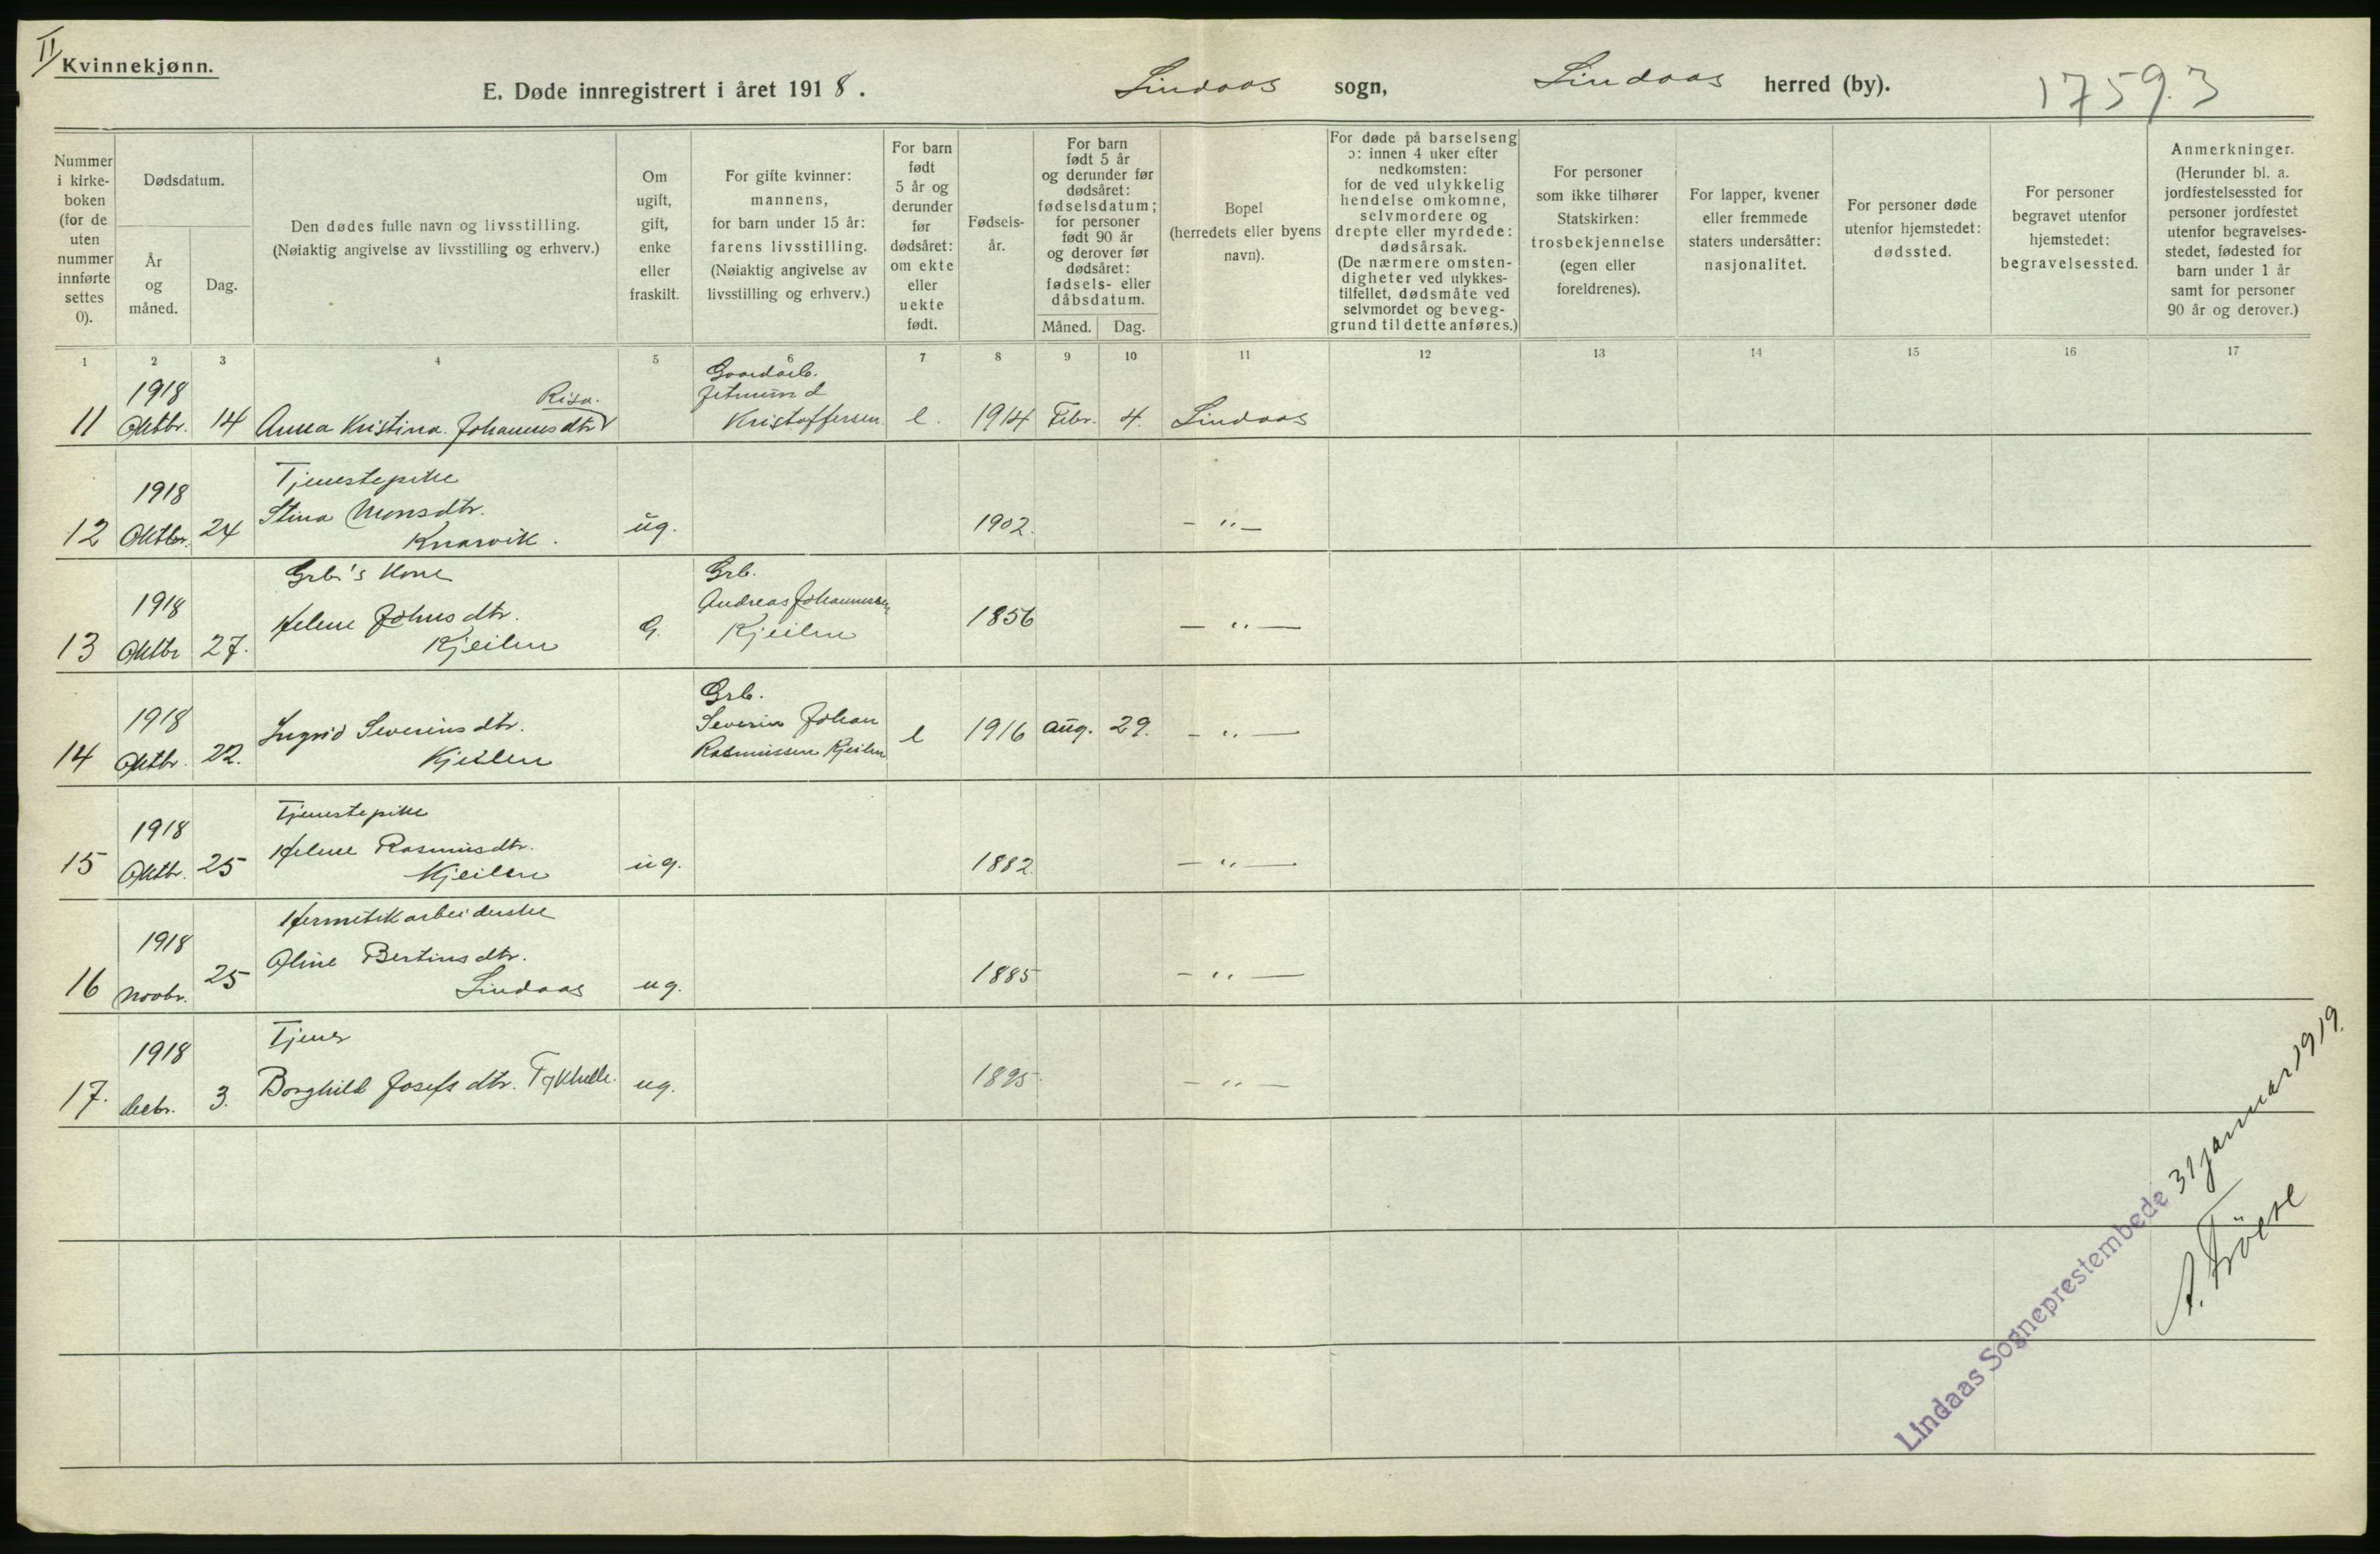 II
Kvinnekjønn.
E. Døde innregistrert i året 1918.
Lindaas sogn,
Lindaas herred (by).
17593
Nummer
i kirke-
boken
(for de
uten
nummer
innførte
settes
0).
Dødsdatum.
År
og
måned.
Dag.
Den dødes fulle navn og livsstilling.
(Nøiaktig angivelse av livsstilling og erhverv.)
Om
ugift,
gift,
enke
eller
fraskilt.
For gifte kvinner:
mannens,
for barn under 15 år:
farens livsstilling.
(Nøiaktig angivelse av
livsstilling og erhverv.)
For barn
født
5 år og
derunder
før
dødsåret:
om ekte
eller
uekte
født.
Fødsels-
år.
For barn
født 5 år
og derunder før
dødsåret:
fødselsdatum;
for personer
født 90 år
og derover før
dødsåret:
fødsels- eller
dåbsdatum.
Måned.
Dag.
Bopel
(herredets eller byens
navn).
For døde på barselseng
ɔ: innen 4 uker efter
nedkomsten:
for de ved ulykkelig
hendelse omkomne,
selvmordere og
drepte eller myrdede:
dødsårsak.
(De nærmere omsten-
digheter ved ulykkes-
tilfellet, dødsmåte ved
selvmordet og beveg-
grund til dette anføres.)
For personer
som ikke tilhører
Statskirken:
trosbekjennelse
(egen eller
foreldrenes).
For lapper, kvener
eller fremmede
staters undersåtter:
nasjonalitet.
For personer døde
utenfor hjemstedet:
dødssted.
For personer
begravet utenfor
hjemstedet:
begravelsessted.
Anmerkninger.
(Herunder bl. a.
jordfestelsessted for
personer jordfestet
utenfor begravelses-
stedet, fødested for
barn under 1 år
samt for personer
90 år og derover.)
1 2 3 4 5 6 7 8 9 10 11 12 13 14 15 16 17
1918 Risa. Gaardarb.
11 Oktbr. 14 Anna Kristina Johannesdtr Kristoffersen e. 1914 Febr. 4. Lindaas
1918 Tjenestepike
Stina Monsdtr.
12 Oktbr. 24 Knarvik. ug. 1902. - " -
Grb's Kone Grb.
1918 Helene Johnsdtr. Andreas Johannessen
13 Oktbr 27. Kjeilen G. Kjeilen 1856 - " -
Grb.
1918 Ingrid Severinsdtr. Severin Johan
14 Oktbr. 22. Kjeilen Rasmussen Kjeilen e 1916 Aug. 29. - " -
Tjenestepike
1918 Helene Rasmusdtr.
15 Oktbr. 25 Kjeilen ug. 1882. - " -
Hermetikarbeiderske
1918 Oline Bertinsdtr.
16 Novbr. 25 Lindaas ug. 1885 - " -
1918 Tjener
17. Decbr. 3. Borghild Josefsdtr. ug. 1895. - " -
Lindaas Sogneprestembede 31 januar 1919.